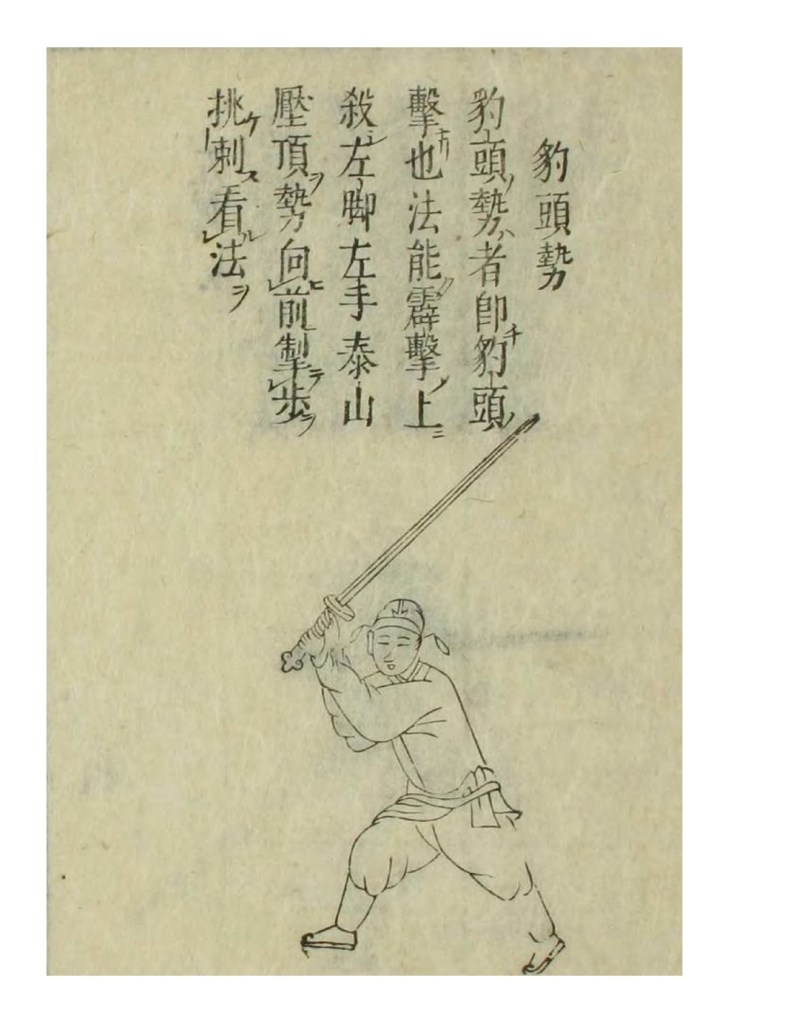 豹頭勢
豹頭勢者即豹頭
擊也法能霹擊上
殺左脚左手泰山
壓頂勢向前掣步
挑刺看法